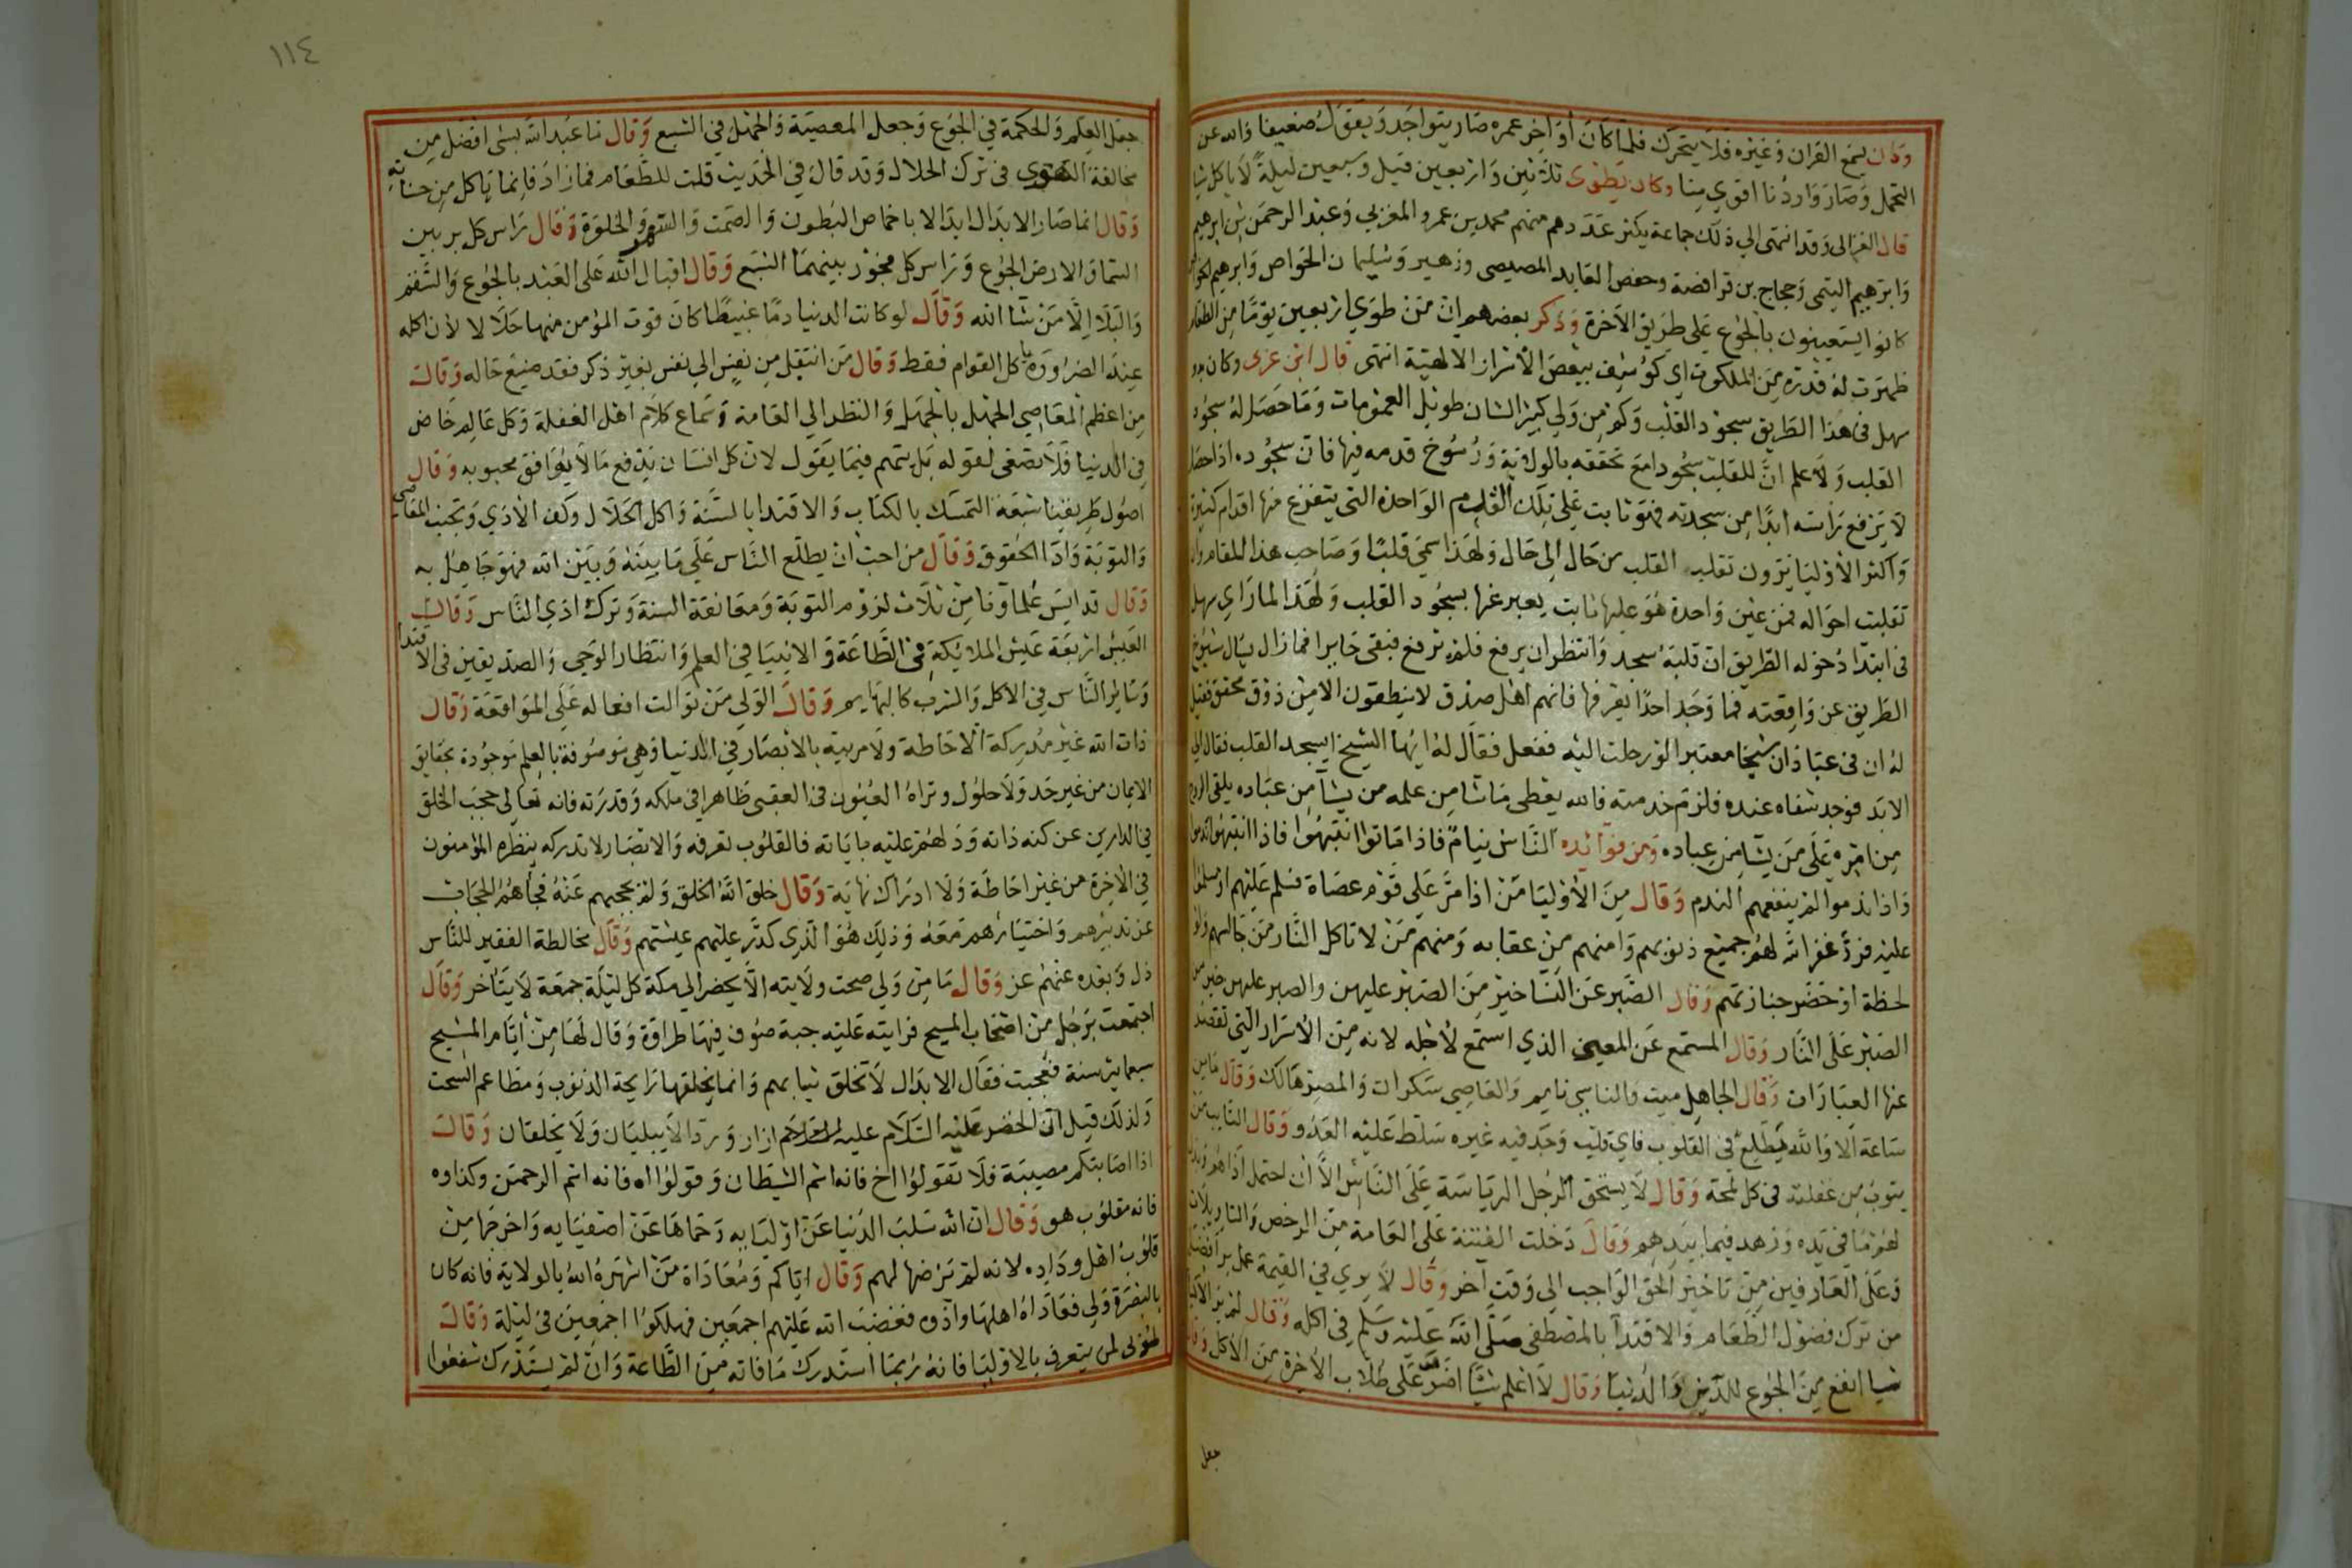 وكان يسمع القران وغيره فلا يتحرك فلما كان أواخر عمره صار يتواجد ويقول ضعيفا والله عن
التحمل وصار واردنا اقوي منا وكان يطوى ثلاثين واربعين قيل وسبعين ليلة لا ياكل شيا
قال الغزالى وقد انتهى الي ذلك جماعة يكثر عددهم منهم محمد بن عمرو المغربي وعبد الرحمن بن ابرهيم
وابرهيم التيمى وحجاج بن قرافصة وحفص العابد المصيصى وزهير وسليمان الخواص وابرهيم الخواص
كانوا يستعينون بالجوع على طريق الآخرة وذكر بعضهم ان من طوي اربعين يوما من الطعام
ظهرت له قدرة من الملكوت اي كوشف ببعض الأسرار الالهية انتهى قال ابن عربى وكان بدو
سهل فى هذا الطريق سجود القلب وكم من ولي كبير الشان طويل العمر مات وما حصل له سجود
القلب ولا علم ان للقلب سجودا مع تحققه بالولاية ورسوخ قدمه فيها فان سجوده اذا حصل
لا يرفع راسه ابدا من سجدته فهو ثابت على تلك القدم الواحدة التى يتفرع منها اقدام كثيرة
واكثر الأوليا يرون تقلب القلب من حال الى حال ولهذا سمي قلبا وصاحب هذا المقام وان
تقلبت احواله فمن عين واحدة هو عليها ثابت يعبر عنها بسجود القلب ولهذا لما راي سهل
فى ابتدا دخوله الطريق ان قلبه سجد وانتظر ان يرفع فلم يرفع فبقى حايرا فما زال يسال شيوخ
الطريق عن واقعته فما وجد احدا يعرفها فانهم اهل صدق لا ينطقون الا من ذوق محقق فقيل
له ان فى عبادان شيخا معتبرا لو رحلت اليه ففعل فقال له ايها الشيخ ايسجد القلب فقال الي
الابد فوجد شفاه عنده فلزم خدمته فالله يعطى ما شا من علمه من يشا من عباده يلقى الروح
من امره على من يشا من عباده ومن فوائده الناس نيام فاذا ماتوا انتبهوا فاذا انتبهوا ندموا
واذا ندموا لم ينفعهم الندم وقال من الأوليا من اذا مر على قوم عصاة فسلم عليهم او سلموا
عليه فرد غفر الله لهم جميع ذنوبهم وامنهم من عقابه ومنهم من لا تاكل النار من جالسهم ولو
لحظة او حضر جنازتهم وقال الصبر عن النسا خير من الصبر عليهن والصبر عليهن خير من
الصبر على النار وقال المستمع عن المعين الذي استمع لأجله لانه من الأسرار التى تقصر
عنها العبارات وقال الجاهل ميت والناسي نايم والعاصي سكران والمصر هالك وقال ما من
ساعة الا والله يطلع فى القلوب فاي قلب وجد فيه غيره سلط عليه العدو وقال التايب من
يتوب من غفلته فى كل لمحة وقال لا يستحق الرجل الرياسة على الناس الا ان احتمل اذاهم وبذل
لهم ما فى يده وزهد فيما بيدهم وقال دخلت الفتنة على العامة من الرخص والتاويلات
وعلى العارفين من تاخير الحق الواجب الى وقت آخر وقال لا يري في القيمة عمل بر افضل
من ترك فضول الطعام والاقتدآ بالمصطفى صلى الله عليه وسلم فى اكله وقال لم ير الأكياس
شيا انفع من الجوع للدين والدنيا وقال لا اعلم شيا اضر على طلاب الأخرة من الأكل وقال
جعل
١١٤
جعل العلم والحكمة في الجوع وجعل المعصية والجهل في الشبع وقال ما عبد الله بشى افضل من
مخالفة الهوى فى ترك الحلال وقد قال فى الحديث ثلث للطعام فما زاد فانما ياكل من حسناته
وقال انما صار الابدال ابدالا باخماص البطون والصمت والسهر والخلوة وقال راس كل بر بين
السما والارض الجوع وراس كل فجور بينهما الشبع وقال اقبال الله على العبد بالجوع والسقم
والبلا الا من شا الله وقال لو كانت الدنيا دما غبيطا كان قوت المؤمن منها حلالا لأن اكله
عند الضرورة ياكل القوام فقط وقال من انتقل من نفس الى نفس بغير ذكر فقد ضيع حاله وقال
من اعظم المعاصي الجهل بالجهل والنظر الي العامة وسماع كلام اهل الغفلة وكل عالم خاض
فى الدنيا فلا تصغى لقوله بل يتهم فيما يقول لان كل انسان يدفع ما لا يوافق محبوبه وقال
اصول طريقتنا سبعة التمسك بالكتاب والاقتدا بالسنة واكل الحلال وكف الأذي وتجنب المعاصى
والتوبة وادا الحقوق وقال من احب ان يطلع الناس على ما بينه وبين الله فهو جاهل به
وقال قد ايس علماؤنا من ثلاث لزوم التوبة ومعانقة السنة وترك اذي الناس وقال
العيش اربعة عيش الملائكة فى الطاعة والانبيا في العلم وانتظار الوحي والصديقين فى الاقتدا
وساير الناس فى الأكل والشرب كالبهايم وقال الولى من توالت افعاله على الموافقة وقال
ذات الله غير مدركة الاحاطة ولا مريية بالابصار في الدنيا وهي موصوفة بالعلم موجودة بحقايق
الايمان من غير حد ولا حلول وتراه العيون فى العقبى ظاهرا فى ملكه وقدرته فانه تعالى حجب الخلق
في الدارين عن كنه ذاته ودلهم عليه باياته فالقلوب تعرفه والابصار لا تدركه ينظره المؤمنون
في الأخرة من غير احاطة ولا ادراك نهاية وقال خلق الله الخلق ولم يحجبهم عنه فجاهم الحجاب
عن تدبيرهم واختيارهم معه وذلك هو الذي كدر عليهم عيشهم وقال مخالطة الفقير للناس
ذل وبعده عنهم عز وقال ما من ولى صحت ولايته الا يحضر الى مكة كل ليلة جمعة لا يتاخر وقال
اجتمعت برجل من اصحاب المسيح فرايته عليه جبة صوف فيها طراوة وقال لها من ايام المسيح
سبعماية سنة فعجبت فقال الابدال لا تخلق ثيابهم وانما يخلقها رايحة الذنوب ومطاعم السحت
ولذلك قيل ان الخضر عليه السلام عليه ازار وردا لا يبليان ولا يخلقان وقال
اذا اصابتكم مصيبة فلا تقولوا اخ فانه اسم الشيطان وقولوا اه فانه اسم الرحمن وكذا وه
فانه مقلوب هو وقال ان الله سلب الدنيا عن اوليايه وحماها عن اصفيايه واخرجها من
قلوب اهل وداده لانه لم يرضها لهم وقال اياكم ومعاداة من اشهره الله بالولاية فانه كان
بالبصرة ولى فعاداه اهلها واذوه فغضب الله عليهم اجمعين فهلكوا اجمعين فى ليلة وقال
طوبى لمن يتعرف بالاوليا فانه ربما استدرك ما فاته من الطاعة وان لم يستدرك شفعوا